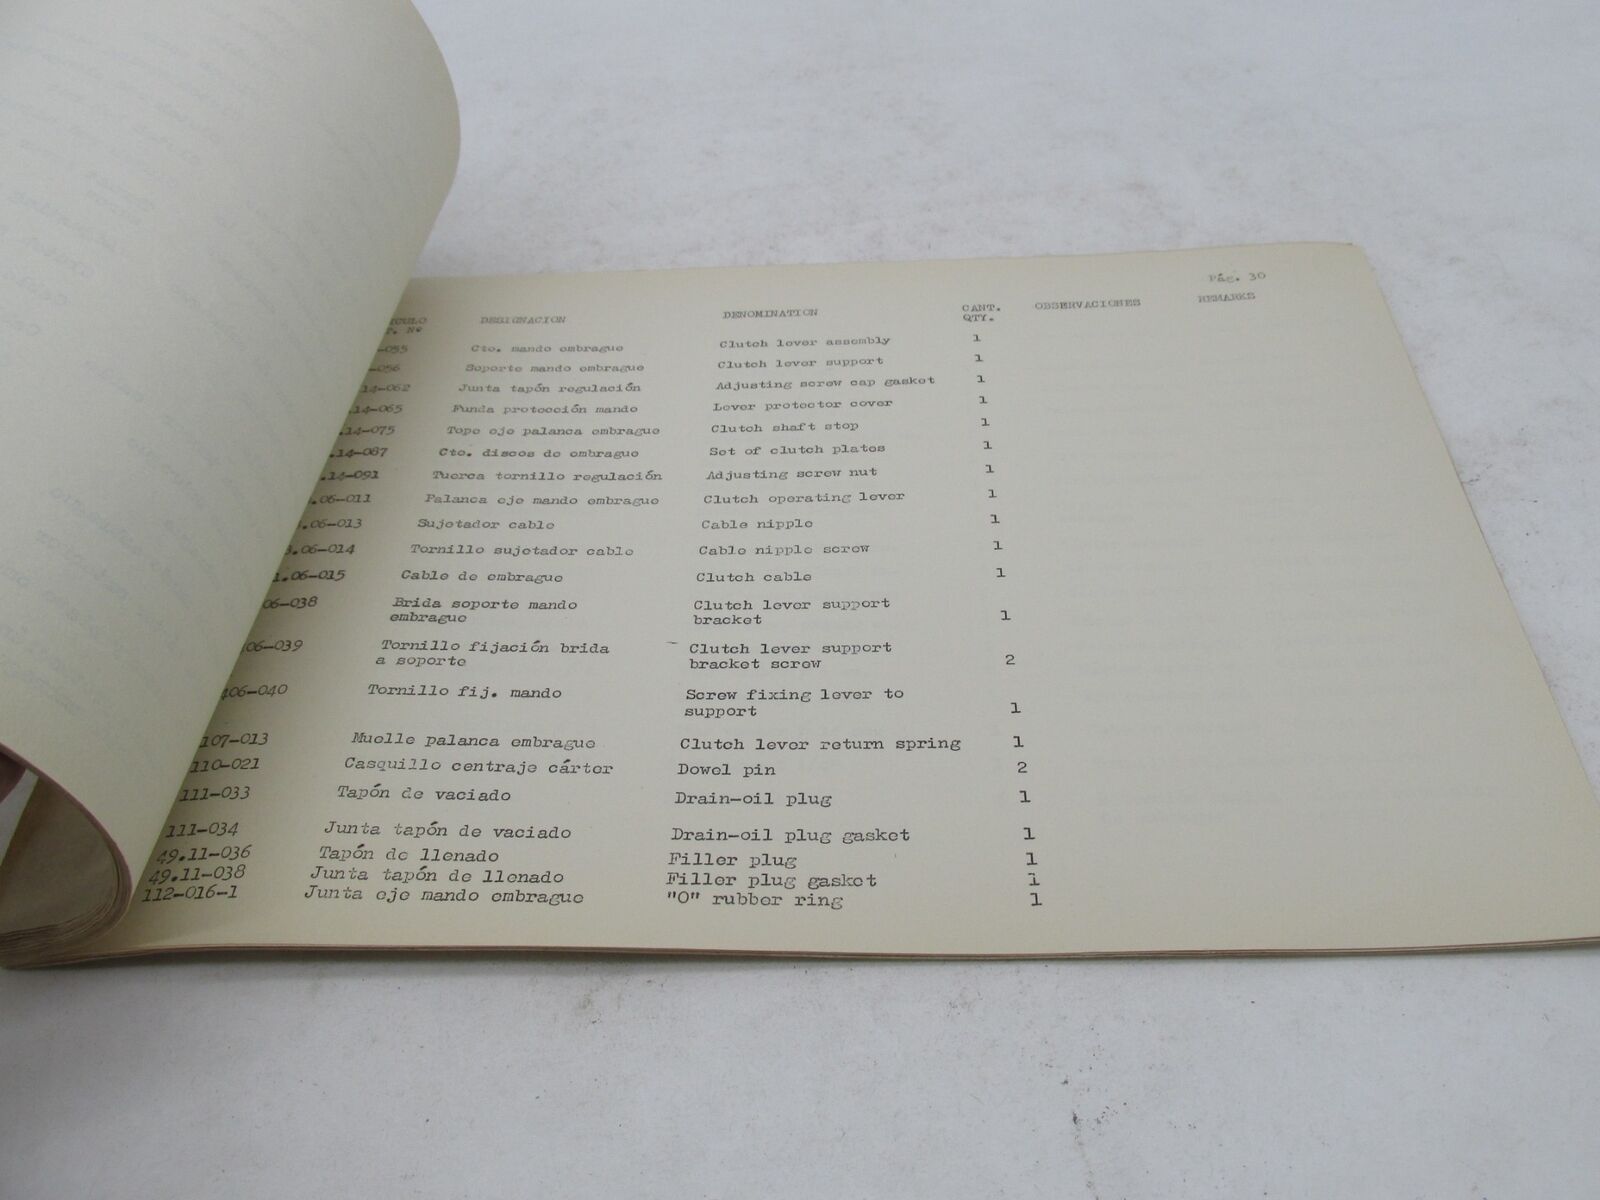 Pág. 30
DESIGNACION DENOMINATION CANT. OBSERVACIONES REMARKS
Nº QTY.
-055 Cto. mando embrague Clutch lever assembly 1
-056 Soporte mando embrague Clutch lever support 1
14-062 Junta tapón regulación Adjusting screw cap gasket 1
.14-065 Funda protección mando Lever protector cover 1
.14-075 Tope eje palanca embrague Clutch shaft stop 1
.14-087 Cto. discos de embrague Set of clutch plates 1
.14-091 Tuerca tornillo regulación Adjusting screw nut 1
.06-011 Palanca eje mando embrague Clutch operating lever 1
.06-013 Sujetador cable Cable nipple 1
.06-014 Tornillo sujetador cable Cable nipple screw 1
.06-015 Cable de embrague Clutch cable 1
06-038 Brida soporte mando Clutch lever support
embrague bracket 1
06-039 Tornillo fijación brida Clutch lever support
a soporte bracket screw 2
406-040 Tornillo fij. mando Screw fixing lever to
support 1
107-013 Muelle palanca embrague Clutch lever return spring 1
110-021 Casquillo centraje cárter Dowel pin 2
111-033 Tapón de vaciado Drain-oil plug 1
111-034 Junta tapón de vaciado Drain-oil plug gasket 1
49.11-036 Tapón de llenado Filler plug 1
49.11-038 Junta tapón de llenado Filler plug gasket 1
112-016-1 Junta eje mando embrague "O" rubber ring 1